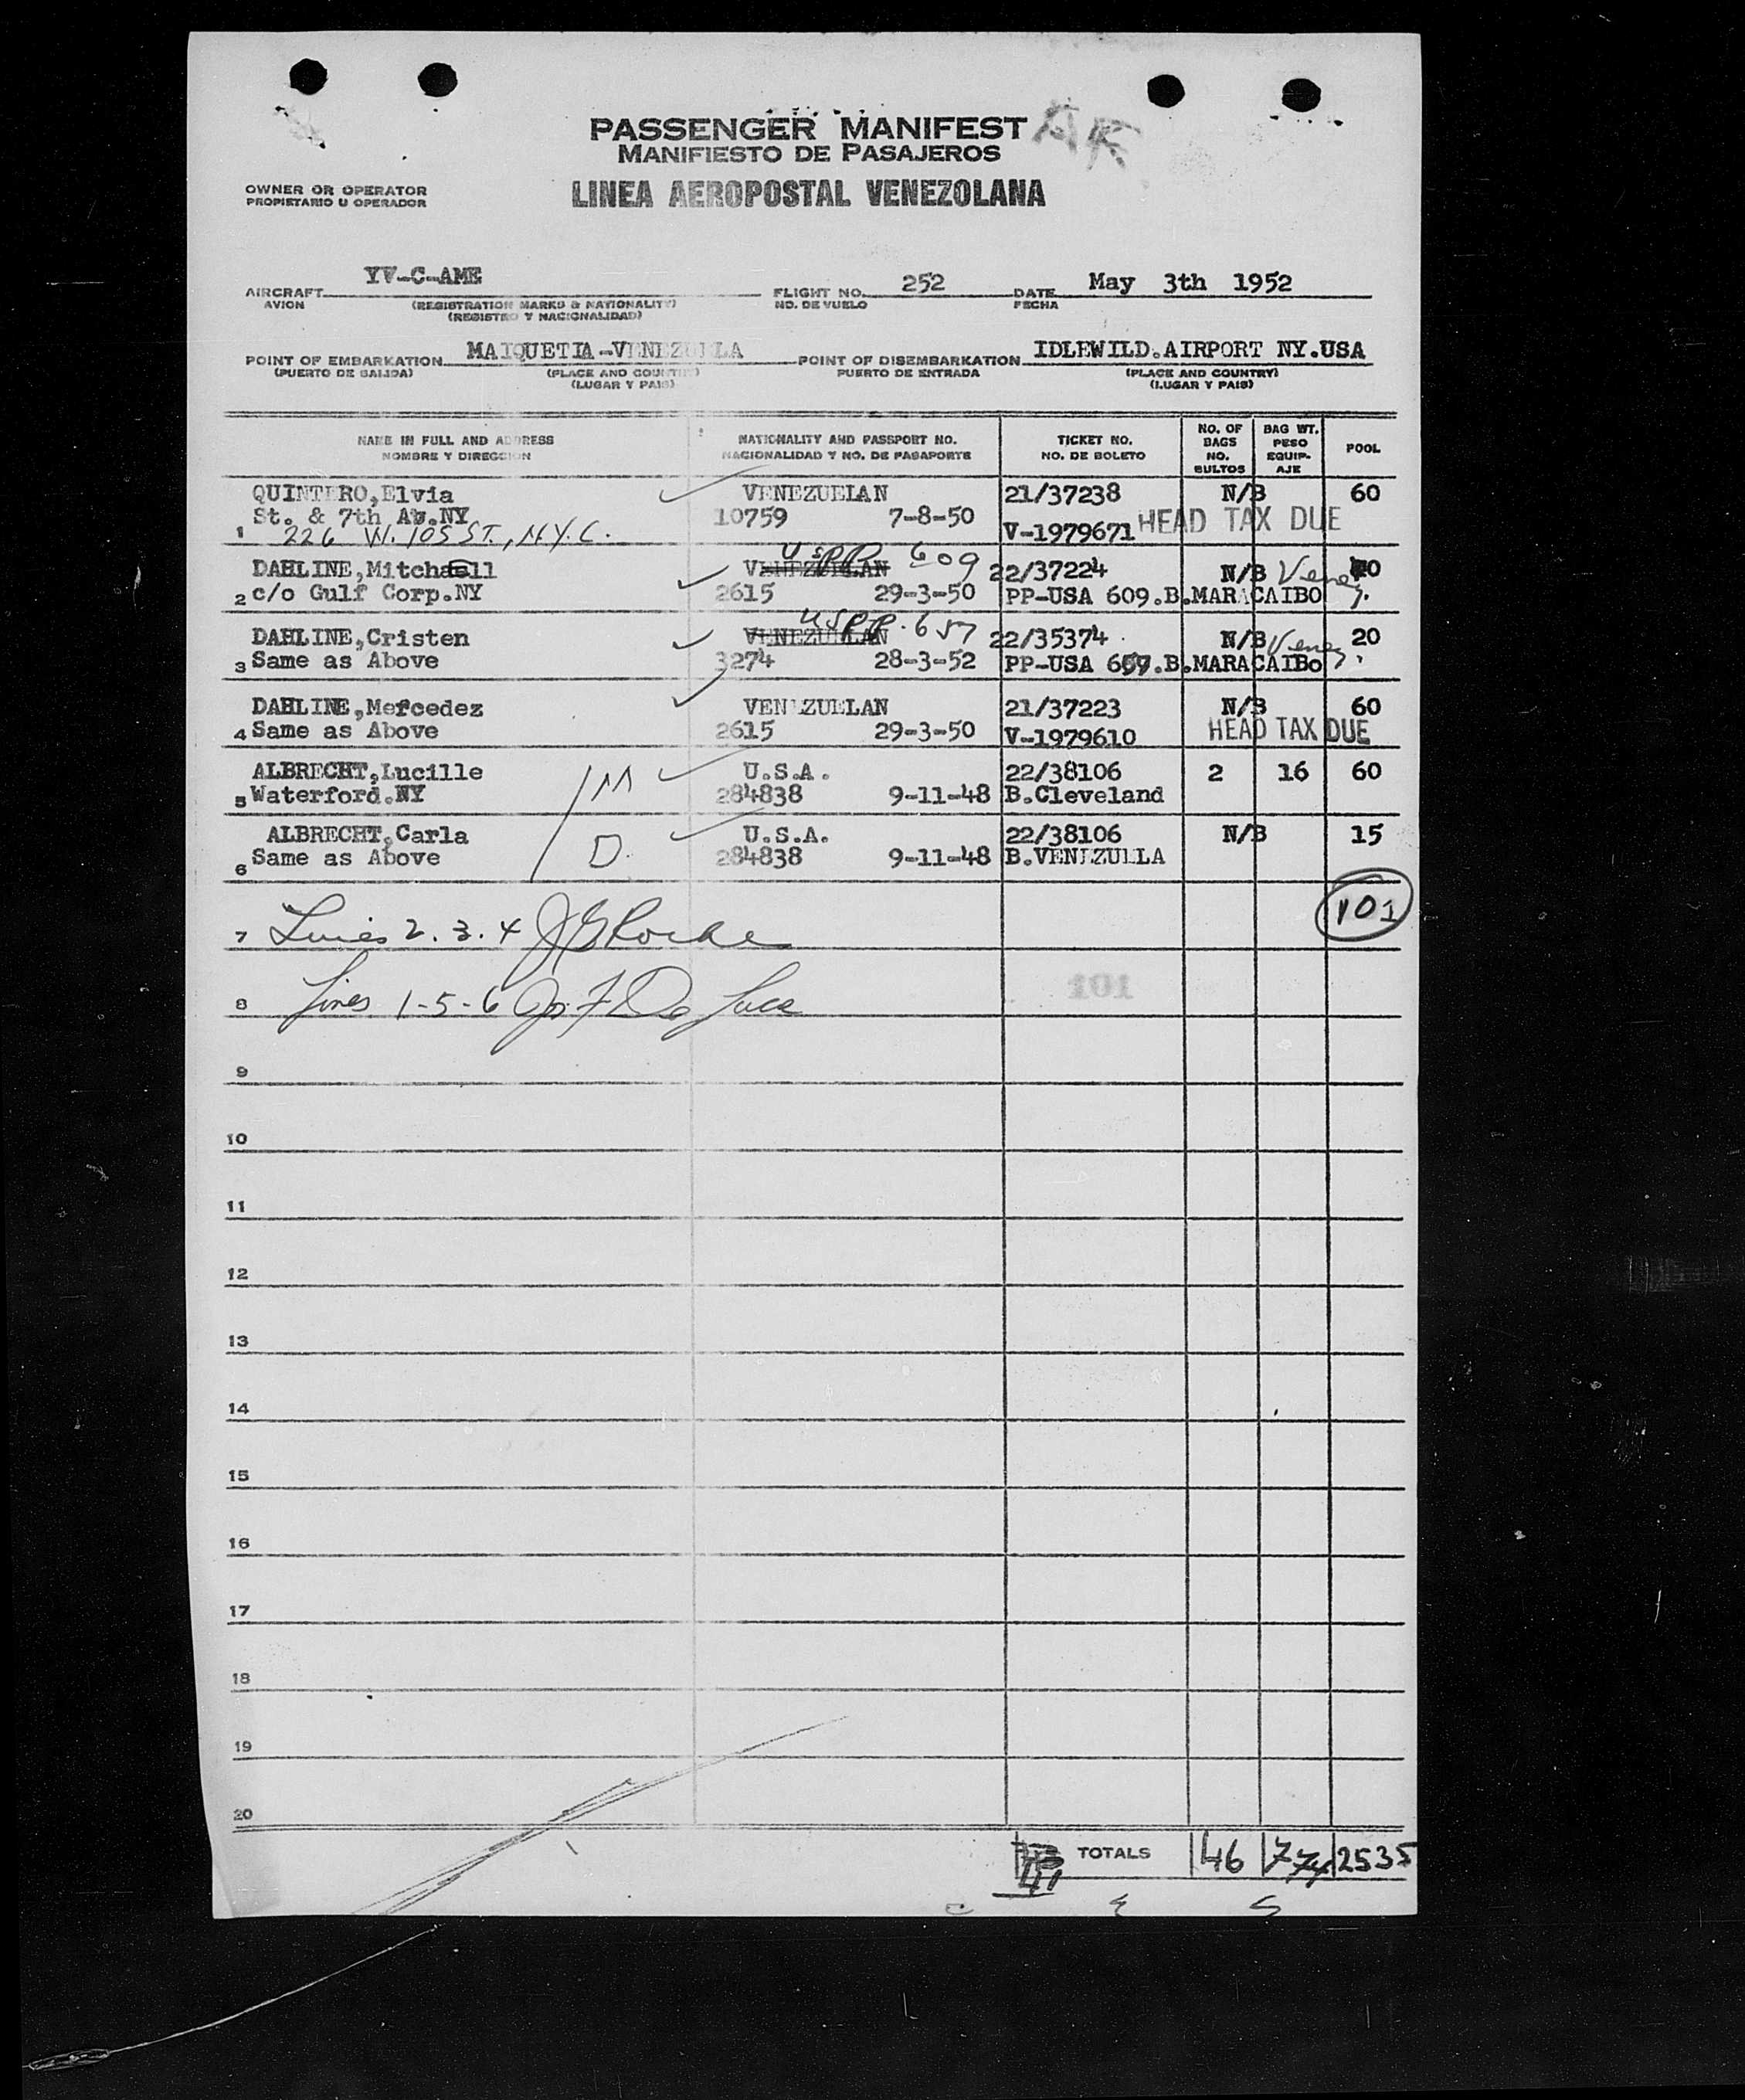 PASSENGER MANIFEST
MANIFIESTO DE PASAJEROS
OWNER OR OPERATOR
PROPIETARIO U OPERADOR
LINEA AEROPOSTAL VENEZOLANA
AIRCRAFT YV-C-AME FLIGHT NO. 252 DATE May 3th 1952
AVION (REGISTRATION MARKS & NATIONALITY) NO. DE VUELO FECHA
(REGISTRO Y NACIONALIDAD)
POINT OF EMBARKATION MAIQUETIA-VENEZUELA POINT OF DISEMBARKATION IDLEWILD.AIRPORT NY.USA
(PUERTO DE SALIDA) (PLACE AND COUNTRY) PUERTO DE ENTRADA (PLACE AND COUNTRY)
(LUGAR Y PAIS) (LUGAR Y PAIS)
NAME IN FULL AND ADDRESS NATIONALITY AND PASSPORT NO. TICKET NO. NO. OF BAGS BAG WT. POOL
NOMBRE Y DIRECCION NACIONALIDAD Y NO. DE PASAPORTE NO. DE BOLETO NO. BULTOS PESO EQUIP-AJE
QUINTERO,Elvia VENEZUELAN 21/37238 N/B 60
St. & 7th Av.NY 10759 7-8-50 V-1979671 HEAD TAX DUE
1 226 W. 105 ST., N.Y.C.
USPP 609
DAHLINE,Mitchaell VENEZUELAN 22/37224 N/B Venez. 20
2 c/o Gulf Corp.NY 2615 29-3-50 PP-USA 609.B.MARACAIBO
USPP. 657
DAHLINE,Cristen VENEZUELAN 22/35374 N/B Venez. 20
3 Same as Above 3274 28-3-52 PP-USA 657.B.MARACAIBo
DAHLINE,Mercedez VENEZUELAN 21/37223 N/B 60
4 Same as Above 2615 29-3-50 V-1979610 HEAD TAX DUE
ALBRECHT,Lucille M U.S.A. 22/38106 2 16 60
5 Waterford.NY 284838 9-11-48 B.Cleveland
ALBRECHT,Carla U.S.A. 22/38106 N/B 15
6 Same as Above D. 284838 9-11-48 B.VENEZUELA
101
7 Lines 2. 3. 4 JG Roche
8 Lines 1-5-6 Jos. F De Luca 101
9
10
11
12
13
14
15
16
17
18
19
20
41 TOTALS 46 774 2535